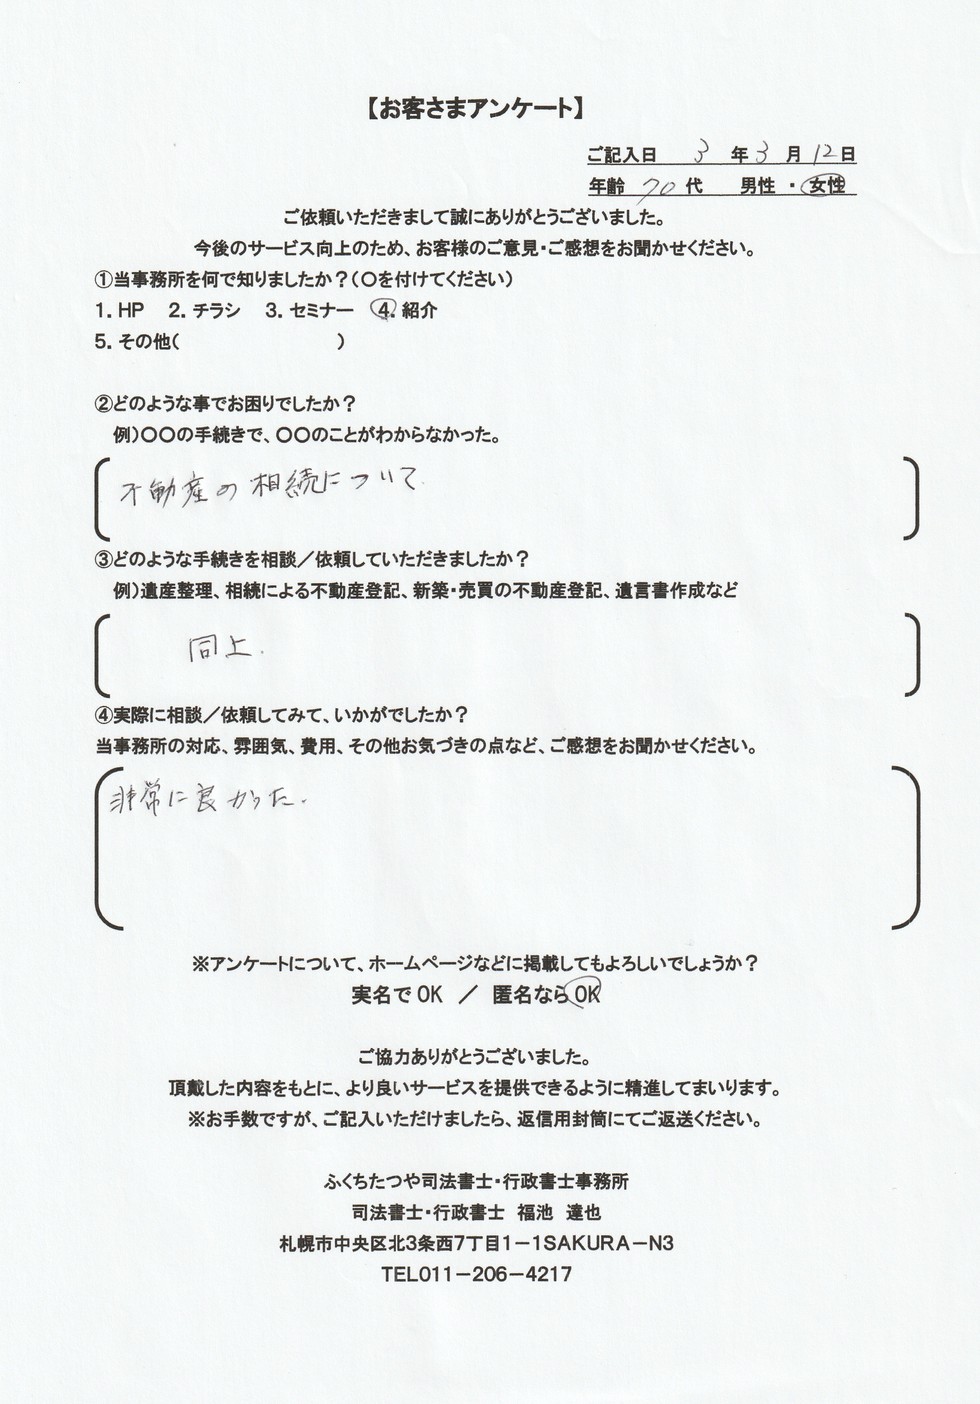 【お客さまアンケート】
ご記入日 3 年 3 月 12 日
年齢 70 代 男性 ・ 女性
ご依頼いただきまして誠にありがとうございました。
今後のサービス向上のため、お客様のご意見・ご感想をお聞かせください。
①当事務所を何で知りましたか？（〇を付けてください）
1．HP 2．チラシ 3．セミナー 4．紹介
5．その他（ ）
②どのような事でお困りでしたか？
例）〇〇の手続きで、〇〇のことがわからなかった。
不動産の相続について
③どのような手続きを相談／依頼していただきましたか？
例）遺産整理、相続による不動産登記、新築・売買の不動産登記、遺言書作成など
同上.
④実際に相談／依頼してみて、いかがでしたか？
当事務所の対応、雰囲気、費用、その他お気づきの点など、ご感想をお聞かせください。
非常に良かった.
※アンケートについて、ホームページなどに掲載してもよろしいでしょうか？
実名でOK ／ 匿名ならOK
ご協力ありがとうございました。
頂戴した内容をもとに、より良いサービスを提供できるように精進してまいります。
※お手数ですが、ご記入いただけましたら、返信用封筒にてご返送ください。
ふくちたつや司法書士・行政書士事務所
司法書士・行政書士 福池 達也
札幌市中央区北3条西7丁目1－1SAKURA－N3
TEL011－206－4217